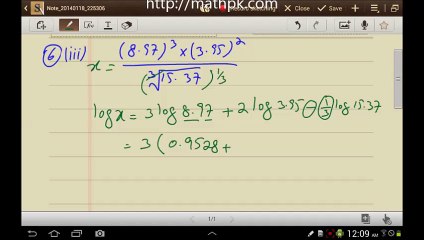 http://mathpk.com
Note_20140118_225306
6 (iii) x = (8.97)³ × (3.95)² / (³√15.37)^1/3
log x = 3 log 8.97 + 2 log 3.95 − 1/3 log 15.37
= 3 ( 0.9528 +
1/1
12:09 AM